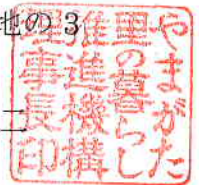 の3
やまがた
里の暮らし
推進機構
理事長印